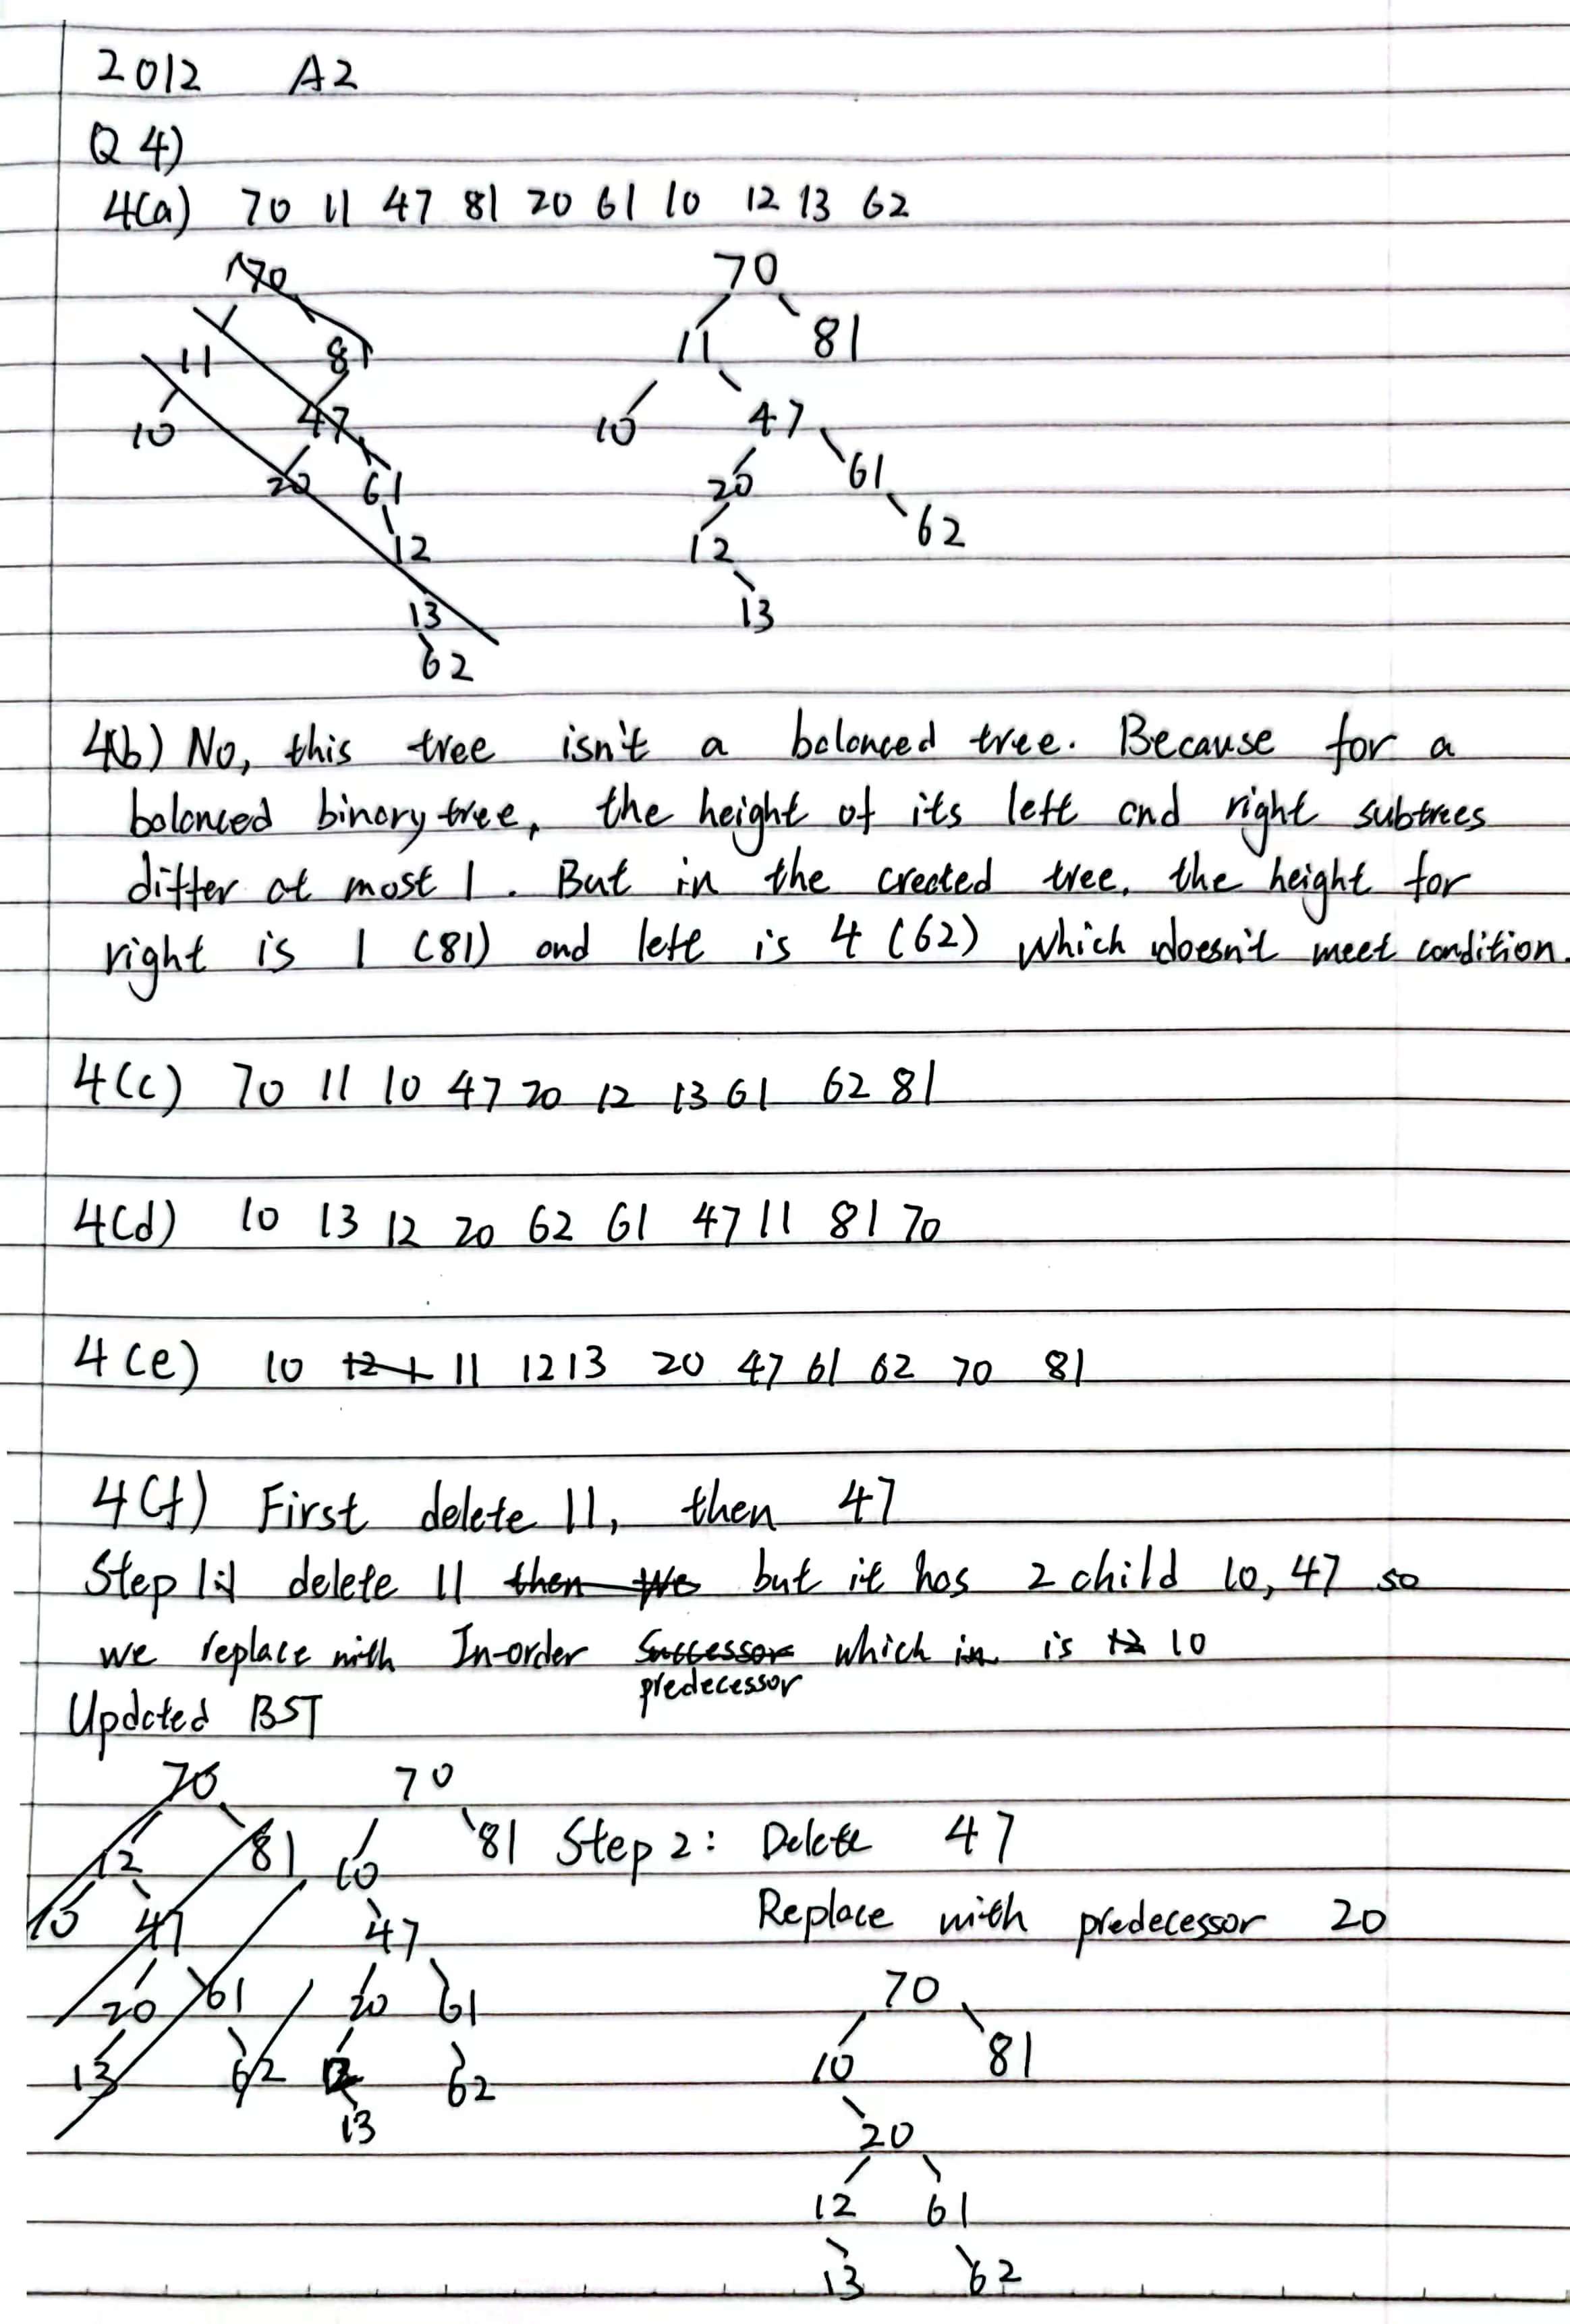 2012 A2
Q 4)
4(a) 70 11 47 81 20 61 10 12 13 62
70
11 81
10 47
20 61
12
13
62
70
11 81
10 47
20 61
12 62
13
4(b) No, this tree isn't a balanced tree. Because for a
balanced binary tree, the height of its left and right subtrees
differ at most 1. But in the created tree, the height for
right is 1 (81) and left is 4 (62) which doesn't meet condition.
4(c) 70 11 10 47 20 12 13 61 62 81
4(d) 10 13 12 20 62 61 47 11 81 70
4(e) 10 12 1 11 12 13 20 47 61 62 70 81
4(f) First delete 11, then 47
Step 1: delete 11 then we but it has 2 child 10, 47 so
we replace with In-order Successor which in is 12 10
predecessor
Updated BST
70
12 81
10 47
20 61
13 62
70
10 81
47
20 61
12 62
13
Step 2: Delete 47
Replace with predecessor 20
70
10 81
20
12 61
13 62